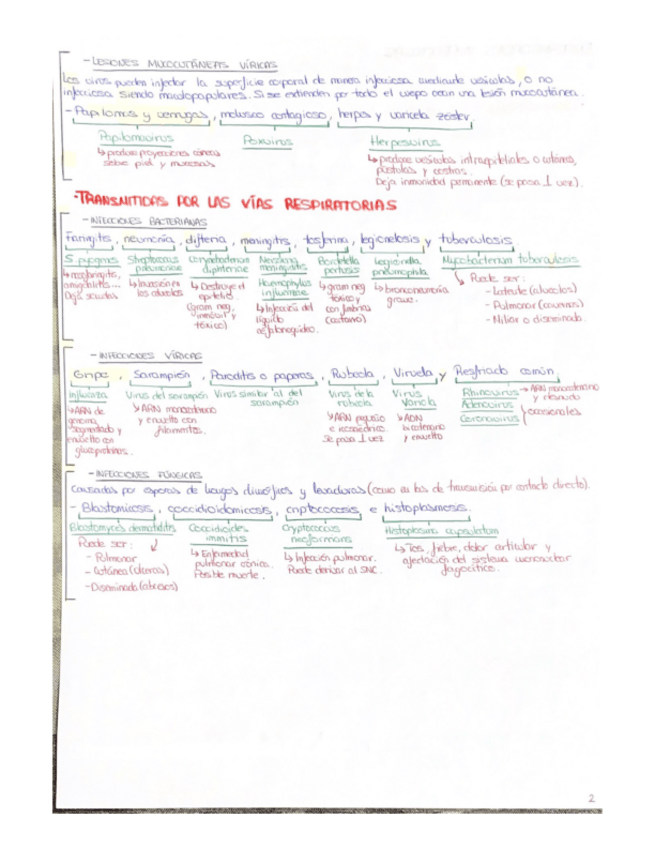 - LESIONES MUCOCUTÁNEAS VÍRICAS
Los virus pueden infectar la superficie corporal de manera infecciosa mediante vesículas, o no
infecciosa siendo maculopapulares. Si se extienden por todo el cuerpo crean una lesión mucocutánea.
- Papilomas y verrugas, molusco contagioso, herpes y varicela zóster.
Papilomavirus Poxvirus Herpesvirus
↳ produce proyecciones cónicas
sobre piel y mucosas
↳ produce vesículas intraepiteliales o
pústulas y costras.
Deja inmunidad permanente (se pasa 1 vez).
- TRANSMITIDAS POR LAS VÍAS RESPIRATORIAS
- INFECCIONES BACTERIANAS
Faringitis, neumonía, difteria, meningitis, tosferina, legionelosis y tuberculosis
S. pyogenes Streptococcus pneumoniae Corynebacterium diphteriae Neisseria meningitidis Bordetella pertusis Legionella pneumophila Mycobacterium tuberculosis
↳ nasofaringitis,
amigdalitis...
Deja secuelas
↳ Infección en
los alveolos
↳ Destruye el
epitelio.
(gram neg,
inmóvil y
tóxico)
Haemophylus
influenzae
↳ Infección del
líquido
cefalorraquídeo.
↳ gram neg
tóxico y
con fimbrias
↳ bronconeumonía
grave.
Puede ser:
- Latente (alveolos)
- Pulmonar (cavernas)
- Miliar o diseminada.
- INFECCIONES VÍRICAS
Gripe, Sarampión, Parotiditis o paperas, Rubeola, Viruela y Resfriado común.
Influenza Virus del sarampión Virus similar al del sarampión Virus de la rubeola Virus Variola
↳ ARN de
genoma
segmentado y
envuelto con
glucoproteínas.
↳ ARN monocatenario
y envuelto con
filamentos.
↳ ARN pequeño
e icosaédrico.
Se pasa 1 vez
↳ ADN
bicatenario
y envuelto
Rhinovirus → ARN monocatenario
y desnudo
Adenovirus
Coronavirus
ocasionales
- INFECCIONES FÚNGICAS
Causadas por esporas de hongos dimórficos y levaduras (como en las de transmisión por contacto directo).
- Blastomicosis, coccidioidomicosis, criptococosis e histoplasmosis.
Blastomyces dermatitidis Coccidioides immitis Cryptococcus neoformans Histoplasma capsulatum
Puede ser:
- Pulmonar
- Cutánea (úlceras)
- Diseminada (abscesos)
↳ Enfermedad
pulmonar crónica.
Posible muerte.
↳ Infección pulmonar.
Puede derivar al SNC.
↳ Tos, fiebre, dolor articular y
afectación del sistema mononuclear
fagocítico.
2